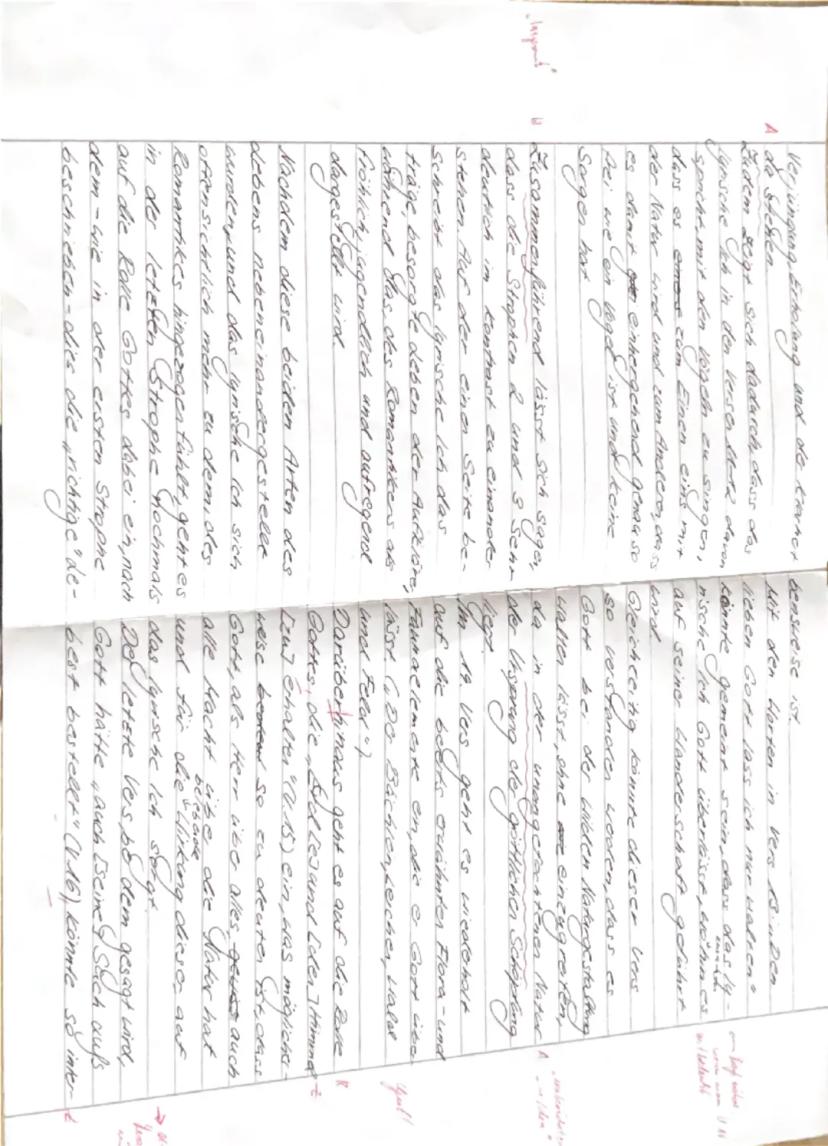 Verjüngung, Erholung und die Klarheit
da stehen.
Zudem zeigt sich dadurch, dass das
lyrische Ich in den Versen 11+12 davon
spricht, mit den Vögeln zu singen,
dass es zum Einen eins mit
der Natur wird und zum Anderen, dass
es damit einhergehend genauso
frei wie ein Vogel ist und keine
Sorgen hat.
Zusammenführend lässt sich sagen,
dass die Strophen 2 und 3 sehr
deutlich im Kontrast zu einander
stehen. Auf der einen Seite be-
schreibt das lyrische Ich das
träge, besorgte Leben der Aufklärer,
während das des Romantikers als
fröhlich, jugendlich und aufregend
dargestellt wird.
Nachdem diese beiden Arten des
Lebens nebeneinandergestellt
wurden und das lyrische Ich sich
offensichtlich mehr zu dem des
Romantikers hingezogen fühlt, geht es
in der letzten Strophe nochmals
auf die Rolle Gottes dabei ein, nach
dem - wie in der ersten Strophe
beschrieben - dies die „richtige" Le-
bensweise ist.
Mit den Worten in Vers 13 „Den
lieben Gott lass ich nur walten"
könnte gemeint sein, dass das ly-
rische Ich Gott überlässt, wohin es
auf seiner Wanderschaft geführt
wird.
Gleichzeitig könnte dieser Vers
so verstanden werden, dass es
Gott bei der wilden Naturgestaltung
walten lässt, ohne einzugreifen,
da in der unangetasteten Natur
der Ursprung der göttlichen Schöpfung
liegt.
Im 14. Vers geht es wiederholt
auf die bereits erwähnten Flora- und
Faunaelemente ein, die er Gott über-
lässt („Der Bächlein, Lerchen, Wald
und Feld")
Darüber hinaus geht es auf die Rolle
Gottes, die „Erd [es] und [den] Himmel
[zu] erhalten" (V. 15) ein, was möglicher-
weise so zu deuten ist, dass
Gott, als Herr über alles auch
alle Macht über die Natur hat
und für die belebende Wirkung dieser auf
das lyrische Ich sorgt.
Der letzte Vers, bei dem gesagt wird,
Gott hätte „auch [seine] Sach aufs
best bestellt" (V. 16), könnte so inter-
A
W
A
R